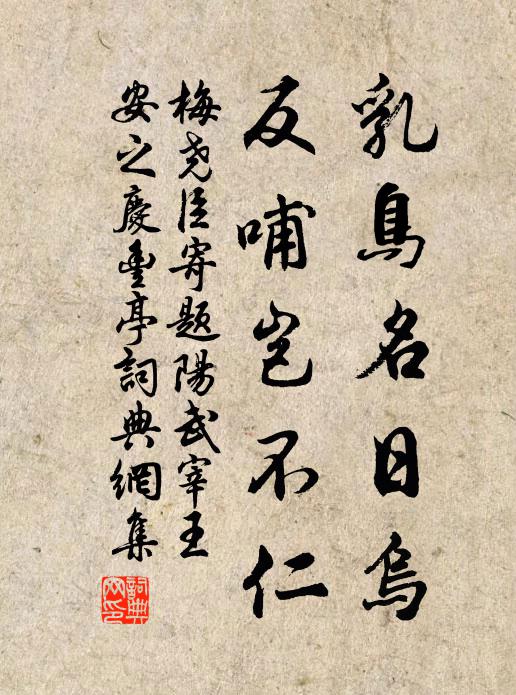 乳鳥名日烏
反哺豈不仁
梅堯臣寄題陽武宰王
安之慶豐亭詞典網集
詞典網印